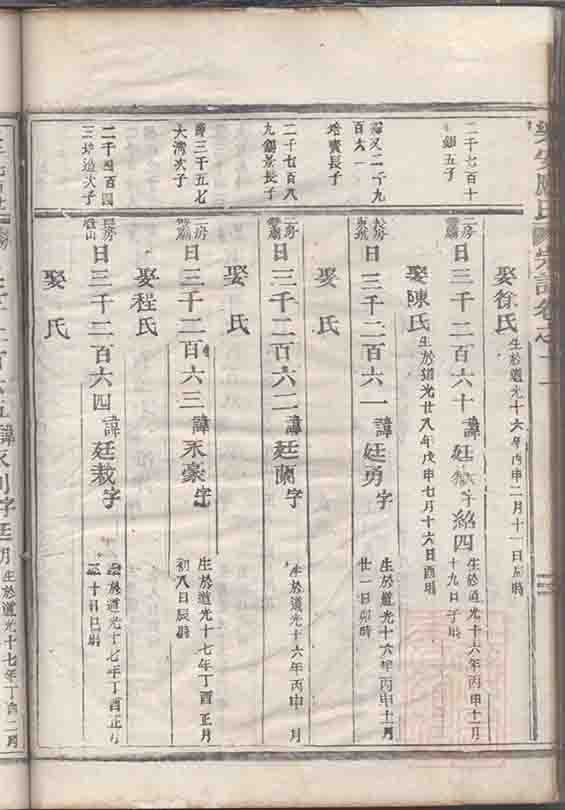 宗譜卷之二
娶徐氏 生於道光十六年丙申二月十一日辰時
二千七百十
五子
二房
日三千二百六十 諱廷 字紹四 生於道光十六年丙申十二月
十九日子時
娶陳氏 生於道光廿八年戊申七月十六日酉時
又二千九
百六一
培賓長子
日三千二百六一 諱廷勇 字 生於道光十六年丙申十二月
廿一日卯時
娶 氏
二千七百八
九 景長子
二房
日三千二百六二 諱廷蘭 字 生於道光十六年丙申 月
娶 氏
三千五七
大灣次子
二房
日三千二百六三 諱永豪 字 生於道光十七年丁酉正月
初八日辰時
娶程氏
二千四百四
三 造次子
日三千二百六四 諱廷栽 字 於道光十七年丁酉正月
十日巳時
娶 氏
諱永 字廷 生於道光十七年丁酉二月